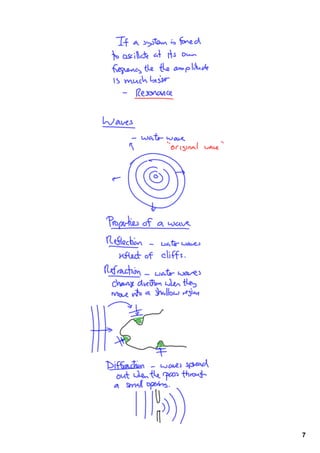 If a system is forced
to oscillate at its own
frequency the the amplitude
is much bigger
- Resonance
Waves
- water wave
"original wave"
Properties of a wave
Reflection - water waves
reflect of cliffs.
Refraction - water waves
change direction when they
move into a shallow region
Diffraction - waves spread
out when the pass through
a small opening.
7